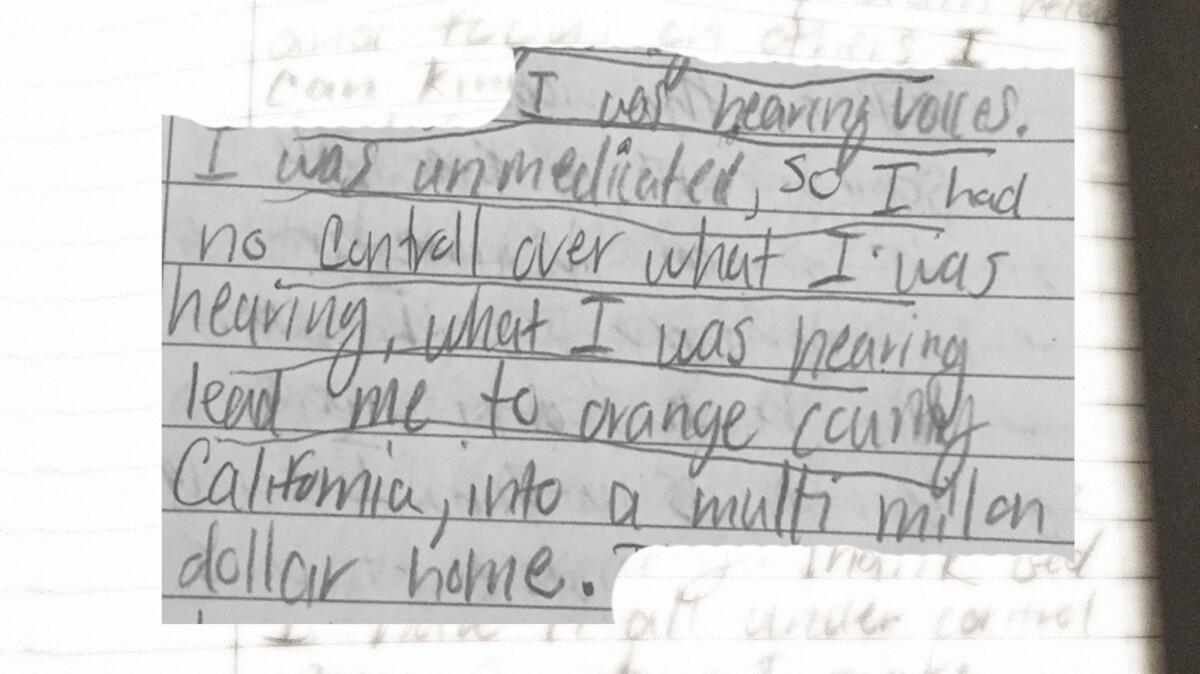 and focus on others I
can
I was hearing voices.
I was unmedicated, so I had
no controll over what I was
hearing, what I was hearing
lead me to orange county
California, into a multi millon
dollar home.
thank God
I have it all under control